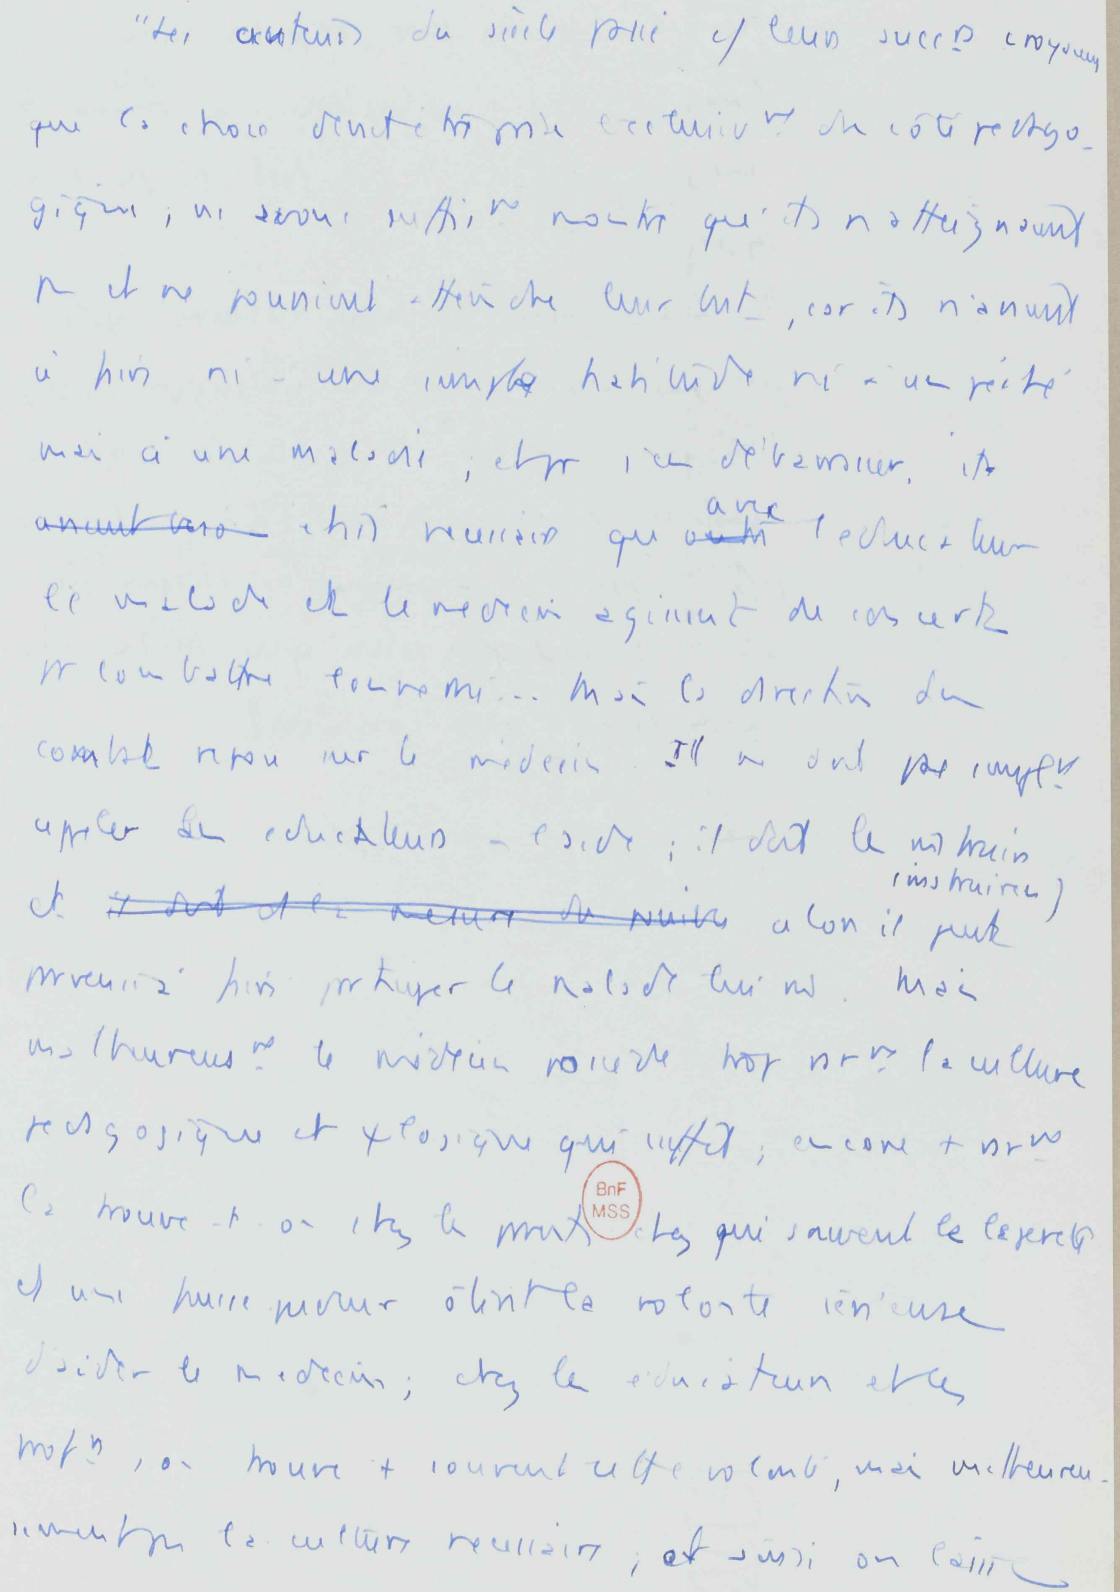 "Les auteurs du siècle passé c/ leurs succrs croyaient
que la chose devait être prise exclusivnt du côté pédago-
gique ; ns avons suffisnt montré qu'ils n'atteignaient
pas et ne pouvaient atteindre leur but, car ils n'avaient
à faire ni à une simple habitude ni à un péché
mais à une maladie ; et pr s'en débarrasser, il
était nécessaire que avec l'éducateur
le malade et le médecin agissent de concert
pr combattre l'ennemi... Mais la direction du
combat repose sur le médecin. Il ne doit pas simplnt
appeler les éducateurs à l'aide ; il doit les instruire
(instruire)
et alors il peut
faire protéger le malade lui-m. Mais
malheureusnt le médecin possède trop rarnt la culture
pédagogique et ψlogique qui suffit ; encore + rarnt
la trouve-t-on chez les parents chez qui souvent la légèreté
et une fausse pudeur ôtent la volonté sérieuse
d'aider le médecin ; chez les éducateurs et les
profrs, on trouve + souvent cette volonté, mais malheureu-
sement pas la culture nécessaire ; et ainsi on laisse
BnF
MSS